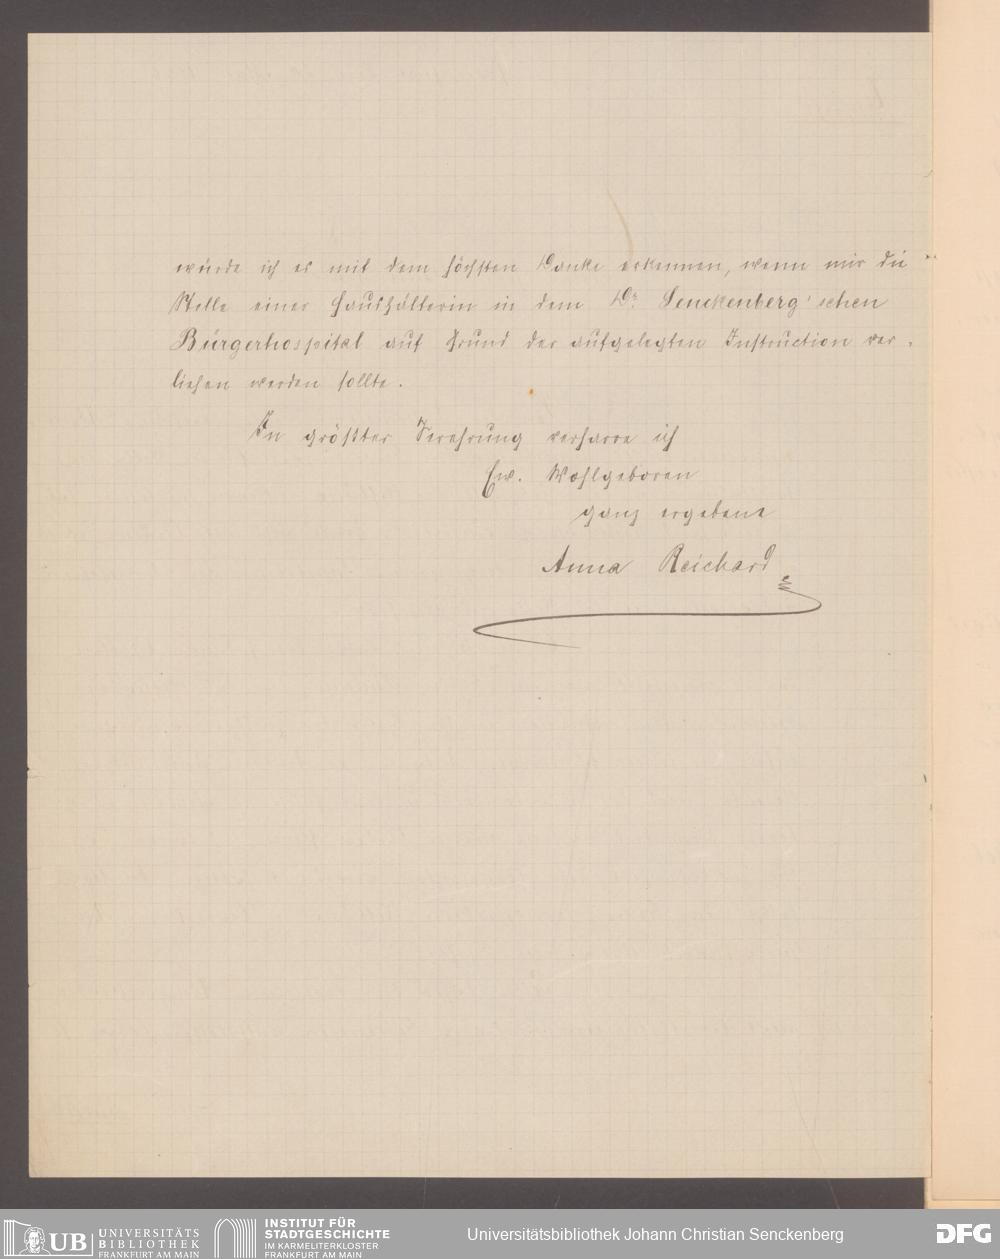 würde ich es mit dem höchsten Danke erkennen, wenn mir die
Stelle einer Haushälterin in dem Dr. Senckenberg'schen
Bürgerhospital auf Grund der aufgelegten Instruction ver-
liehen werden sollte.
In größter Verehrung verharre ich
Ew. Wohlgeboren
ganz ergebene
Anna Reichard
UB UNIVERSITÄTS
BIBLIOTHEK
FRANKFURT AM MAIN
INSTITUT FÜR
STADTGESCHICHTE
IM KARMELITERKLOSTER
FRANKFURT AM MAIN
Universitätsbibliothek Johann Christian Senckenberg
DFG